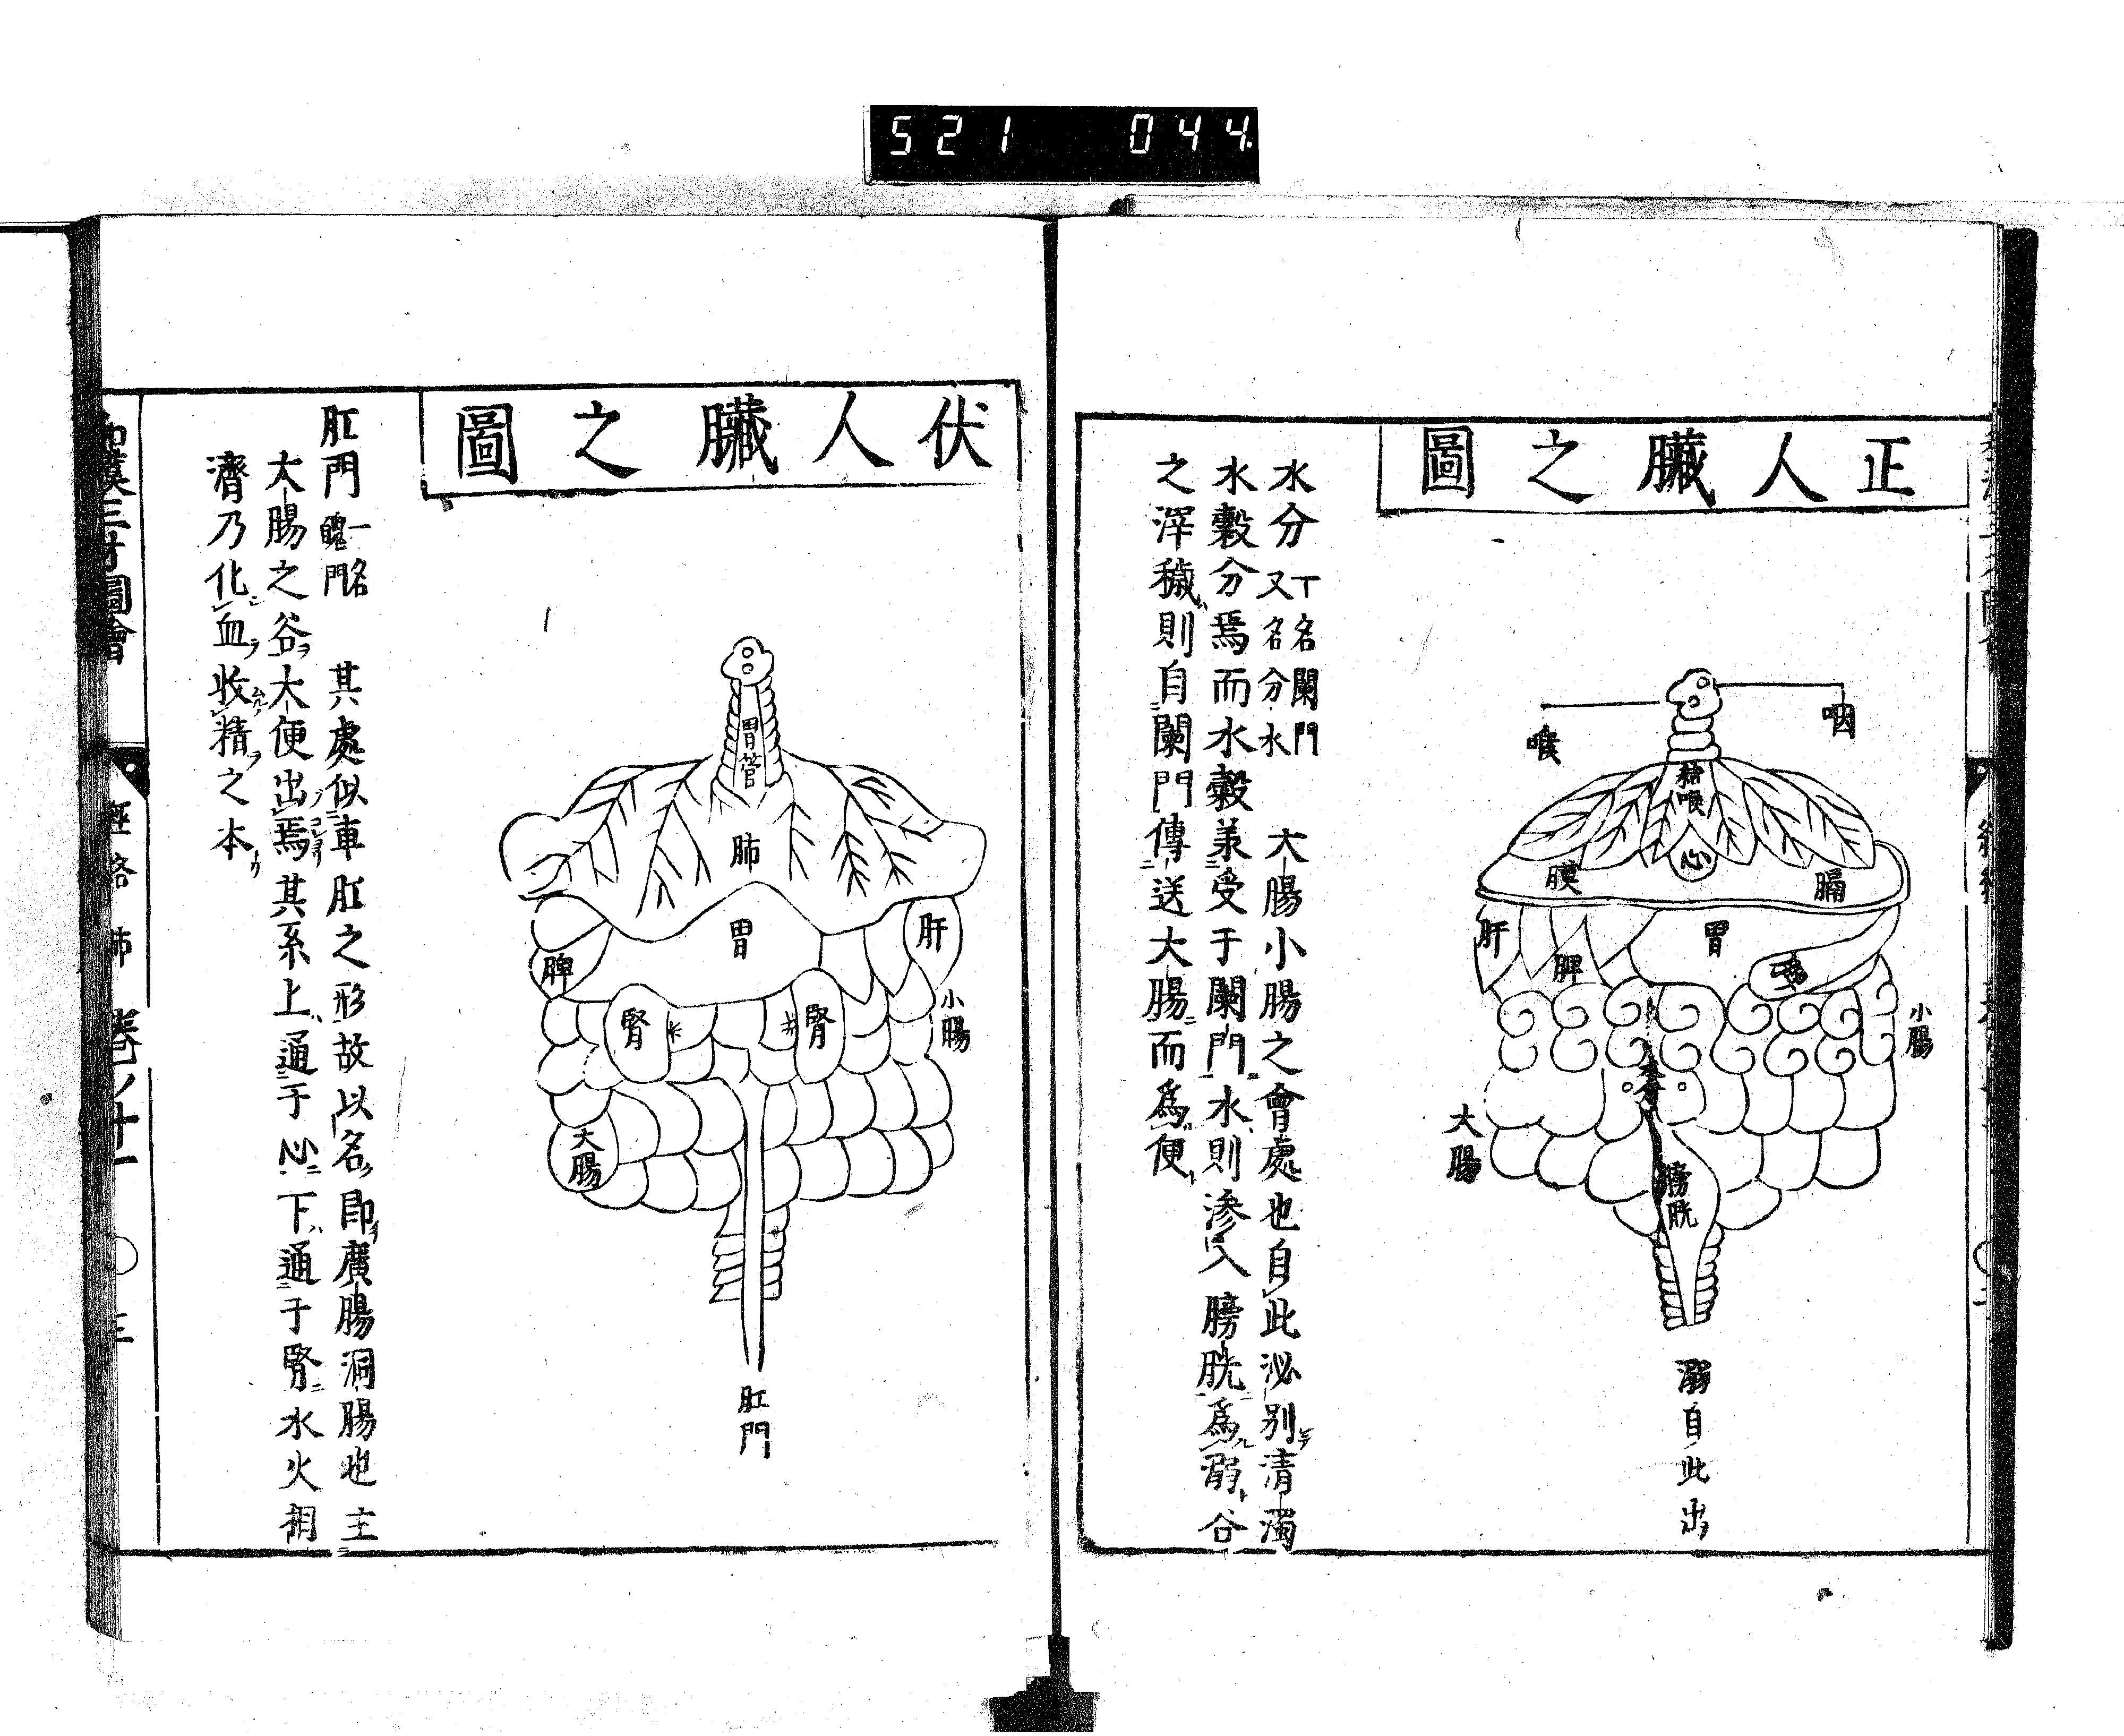 521 044
正人臟之圖
咽
喉
心
膜
膈
肝
脾
胃
小腸
大腸
膀胱
溺自此出
水分
一名闌門
又名分水
大腸小腸之會處也自此泌別清濁
水穀分焉而水穀承受于闌門水則滲入膀胱爲溺谷
之滓穢則自闌門傳送大腸而爲便
伏人臟之圖
胃管
肺
胃
肝
脾
腎
腎
小腸
大腸
肛門
肛門
一名
魄門
其處似車肛之形故以名即廣腸洞腸也主
大腸之谷大便出焉其系上通于心下通于腎水火相
濟乃化血收精之本
和漢三才圖會
經絡部 卷ノ十一 〇三